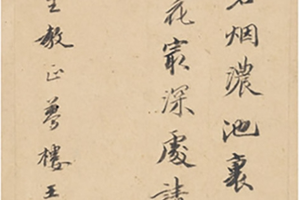 烟濃池裏
花最深處
教正夢樓王